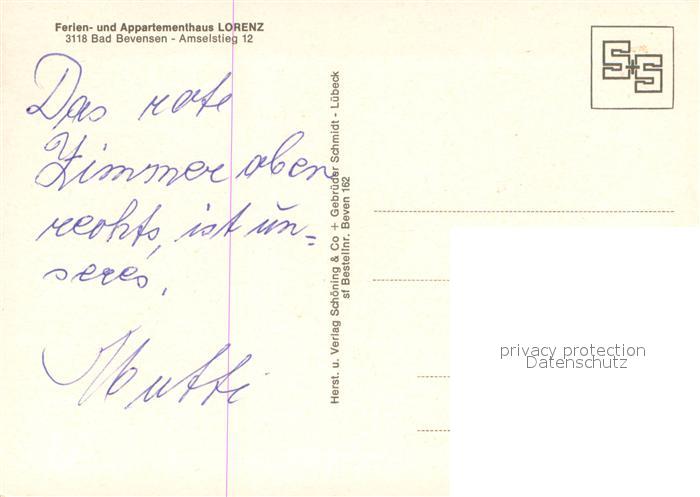 Ferien- und Appartementhaus LORENZ
3118 Bad Bevensen - Amselstieg 12
S+S
Das rote
Zimmer oben
rechts, ist un=
seres,
Mutti
Herst. u. Verlag Schöning & Co + Gebrüder Schmidt - Lübeck
sf Bestellnr. Beven 162
privacy protection
Datenschutz